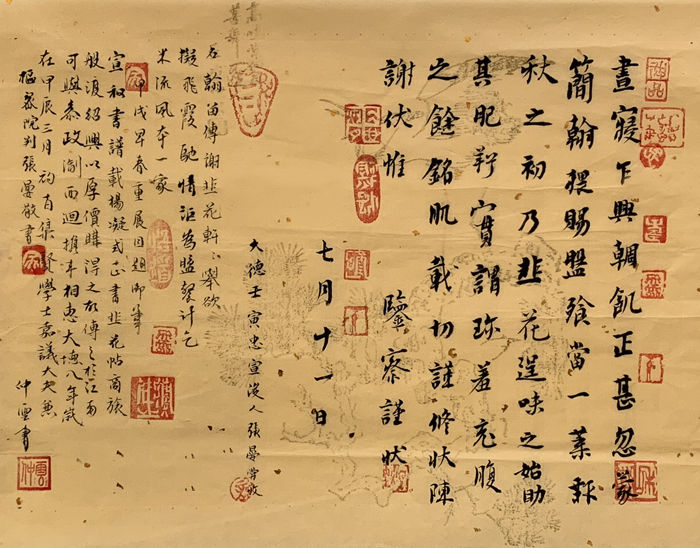 晝寢乍興輖飢正甚忽蒙
簡翰猥賜盤飧當一葉報
秋之初乃韭花逞味之始助
其肥羜實謂珍羞充腹
之餘銘肌載切謹修狀陳
謝伏惟 鑒察謹狀
七月十一日
大德壬寅忠宣後人張晏敬
名翰留傳謝韭花軒〻舉欲
擬飛霞馳情詎為盤餐計乞
米流風本一家
甲戌早春重展因題御筆
宣和書譜載楊凝式正書韭花帖商旅
般渡紹興以厚價購得之於江南
可與參政而迴携相惠大德八年歲
在甲辰三月初吉集賢學士嘉議大夫兼
樞密院判張晏敬書
仲雲書